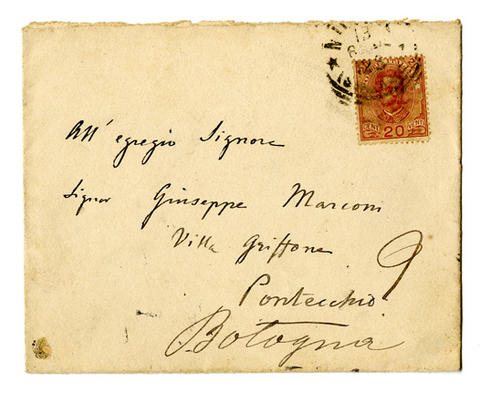 All' egregio Signore
Signor Giuseppe Marconi
Villa Griffone
Pontecchio
Bologna
9
CENT 20 CENT